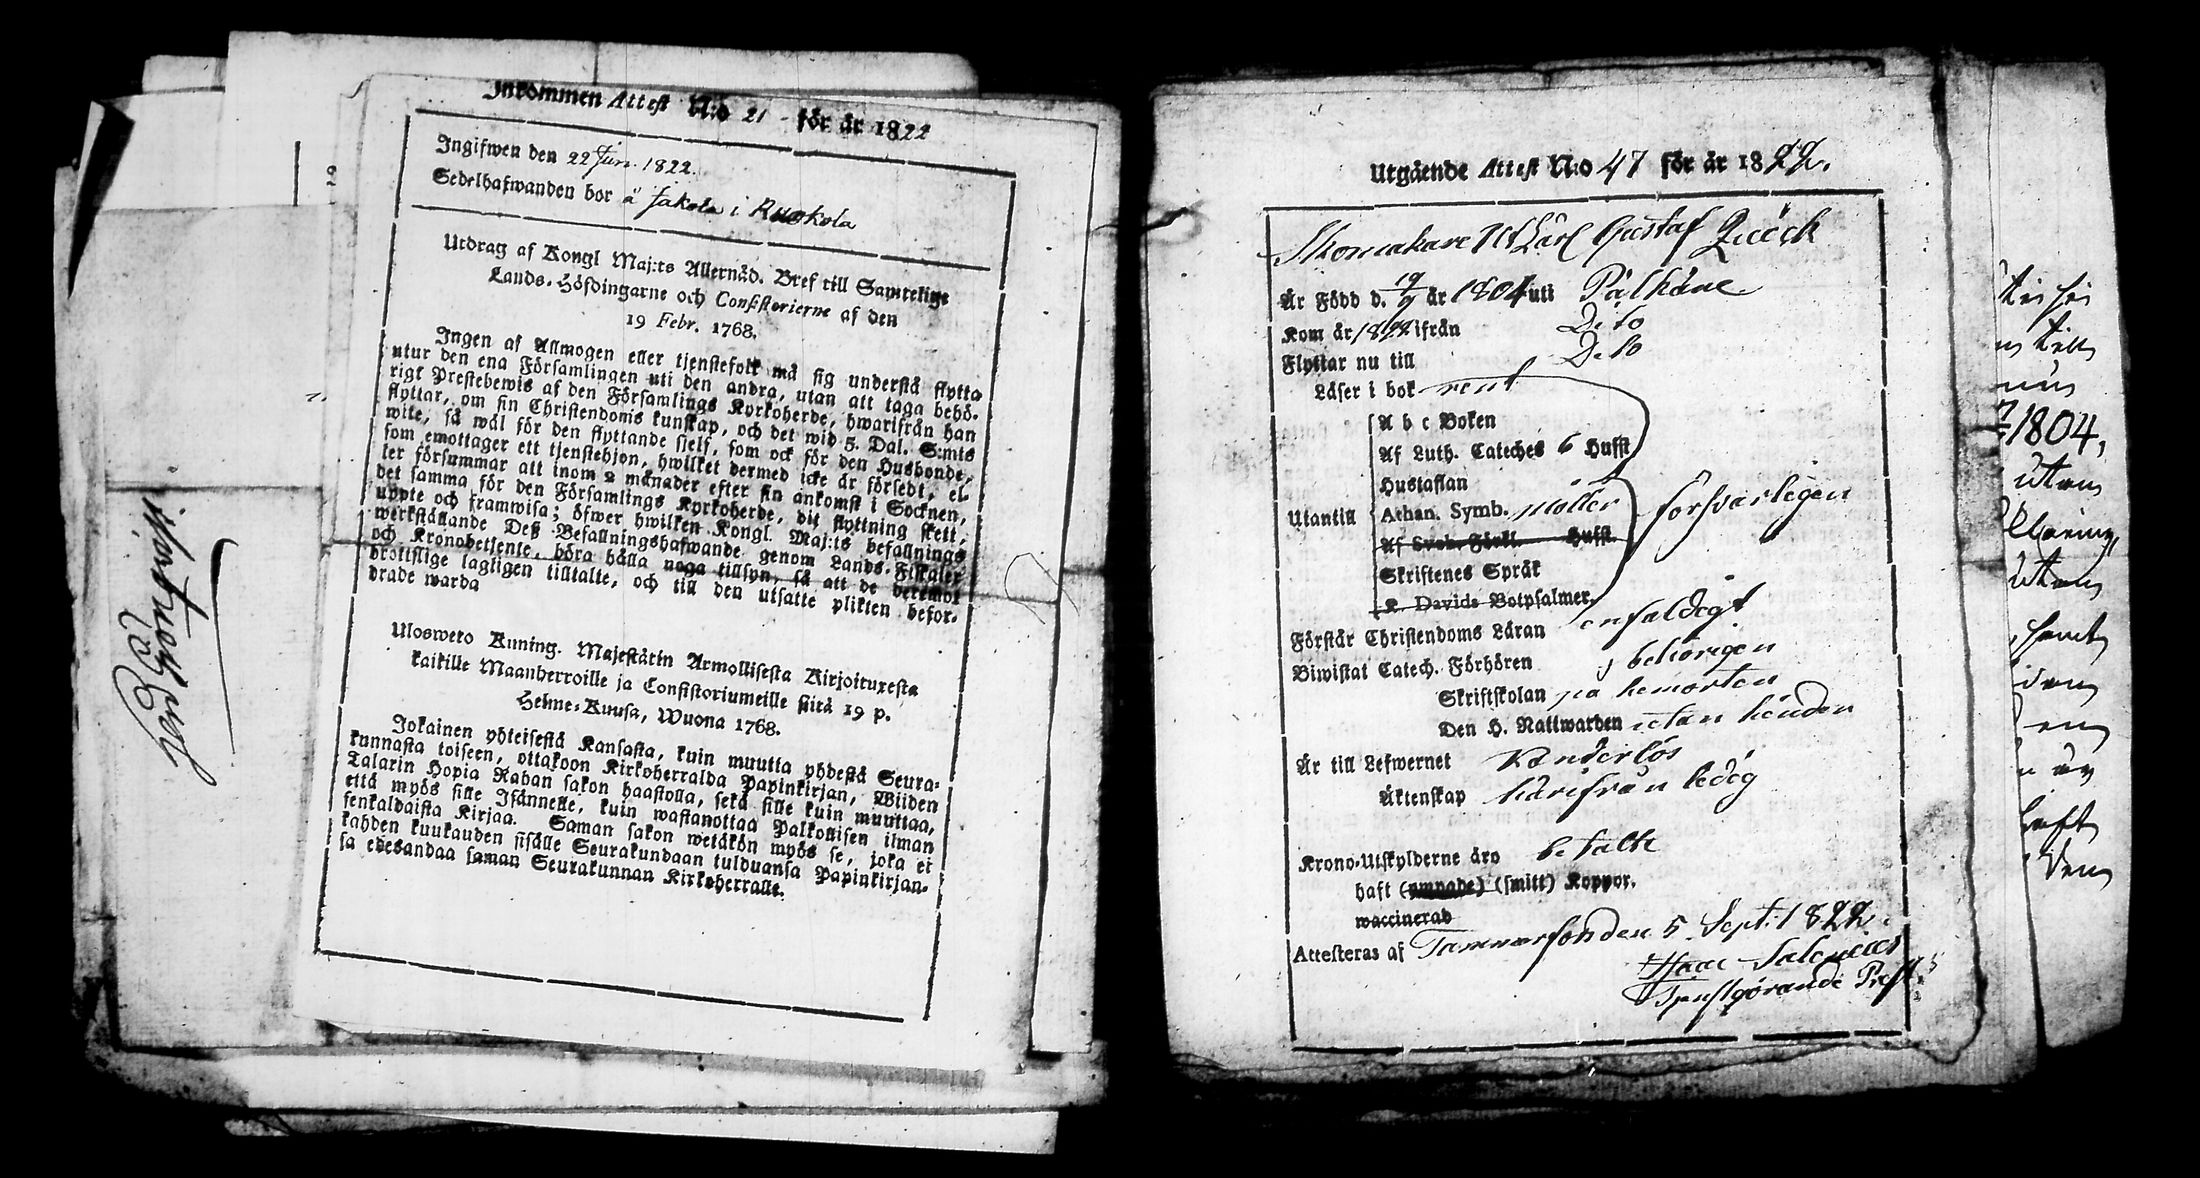 Inkommen Attest N:o 21 för år 1822
Ingifwen den 22 Jun. 1822.
Sedelhafwanden bor å Jakola i Ruokola
Utdrag af Kongl Maj:ts Allernåd. Bref till Samtelige
Lands-Höfdingarne och Consistorierne af den
19 Febr. 1768.
Ingen af Allmogen eller tjenstefolk må sig understå flytta
utur den ena Församlingen uti den andra, utan att taga behö-
rigt Prestebewis af den Församlings Kyrkoherde, hwarifrån han
flyttar, om sin Christendoms kunskap, och det wid 5. Dal. S:mts
wite, så wäl för den flyttande sielf, som ock för den Husbonde,
som emottager ett tjenstehjon, hwilket dermed icke är försedt, el-
ler försummar att inom 2 månader efter sin ankomst i Socknen,
det samma för den Församlings Kyrkoherde, dit flyttning skett,
uppte och framwisa; öfwer hwilken Kongl. Maj:ts befallnings
werkställande Deß Befallningshafwande genom Lands-Fiskaler
och Kronobetjente, böra hålla noga tillsyn, så att de deremot
brottslige lagligen tilltalte, och till den utsatte plikten befor-
drade warda
Ulosweto Kuning. Majestätin Armollisesta Kirjoituxesta
kaikille Maanherroille ja Consistoriumeille siitä 19 p.
Helme-Kuusa, Wuona 1768.
Jokainen yhteisestä Kansasta, kuin muutta yhdestä Seura-
kunnasta toiseen, ottakoon Kirkoherralda Papinkirjan, Wiiden
Talarin Hopia Rahan sakon haastolla, sekä sille kuin muuttaa,
että myös sille Isännelle, kuin wastanottaa Palkollisen ilman
senkaldaista Kirjaa. Saman sakon wetäkön myös se, joka ei
kahden kuukauden sisälle Seurakundaan tulduansa Papinkirjan-
sa edesandaa saman Seurakunnan Kirkoherralle.
Utgående Attest N:o 47 för år 1822.
Skomakare Carl Gustaf Qvöck
Är Född d. 19/9 år 1804 uti Pälkäne
Kom år 1822 ifrån Dito
Flyttar nu till Dito
Läser i bok rent
A b c Boken
Af Luth. Cateches 6 Hufst
Hustaflan
Utantill Athan. Symb. Möller försvarligen
Af Sveb. Förkl. Hufst.
Skriftenes Språk
K. Davids Botpsalmer.
Förstår Christendoms Läran enfaldigt
Biwistat Catech. Förhören behörigen
Skriftskolan på hemorten
Den H. Nattwarden utan hinder
Är till Lefwernet vanderlös
Äktenskap härifrån ledig
Krono-Utskylderne äro betalte
haft (smitt) Koppor.
waccinerad
Attesteras af Tammerfors den 5 Sept. 1822.
Isaac Salenius
Tjenstgörande Prest
1804,
utan
samt